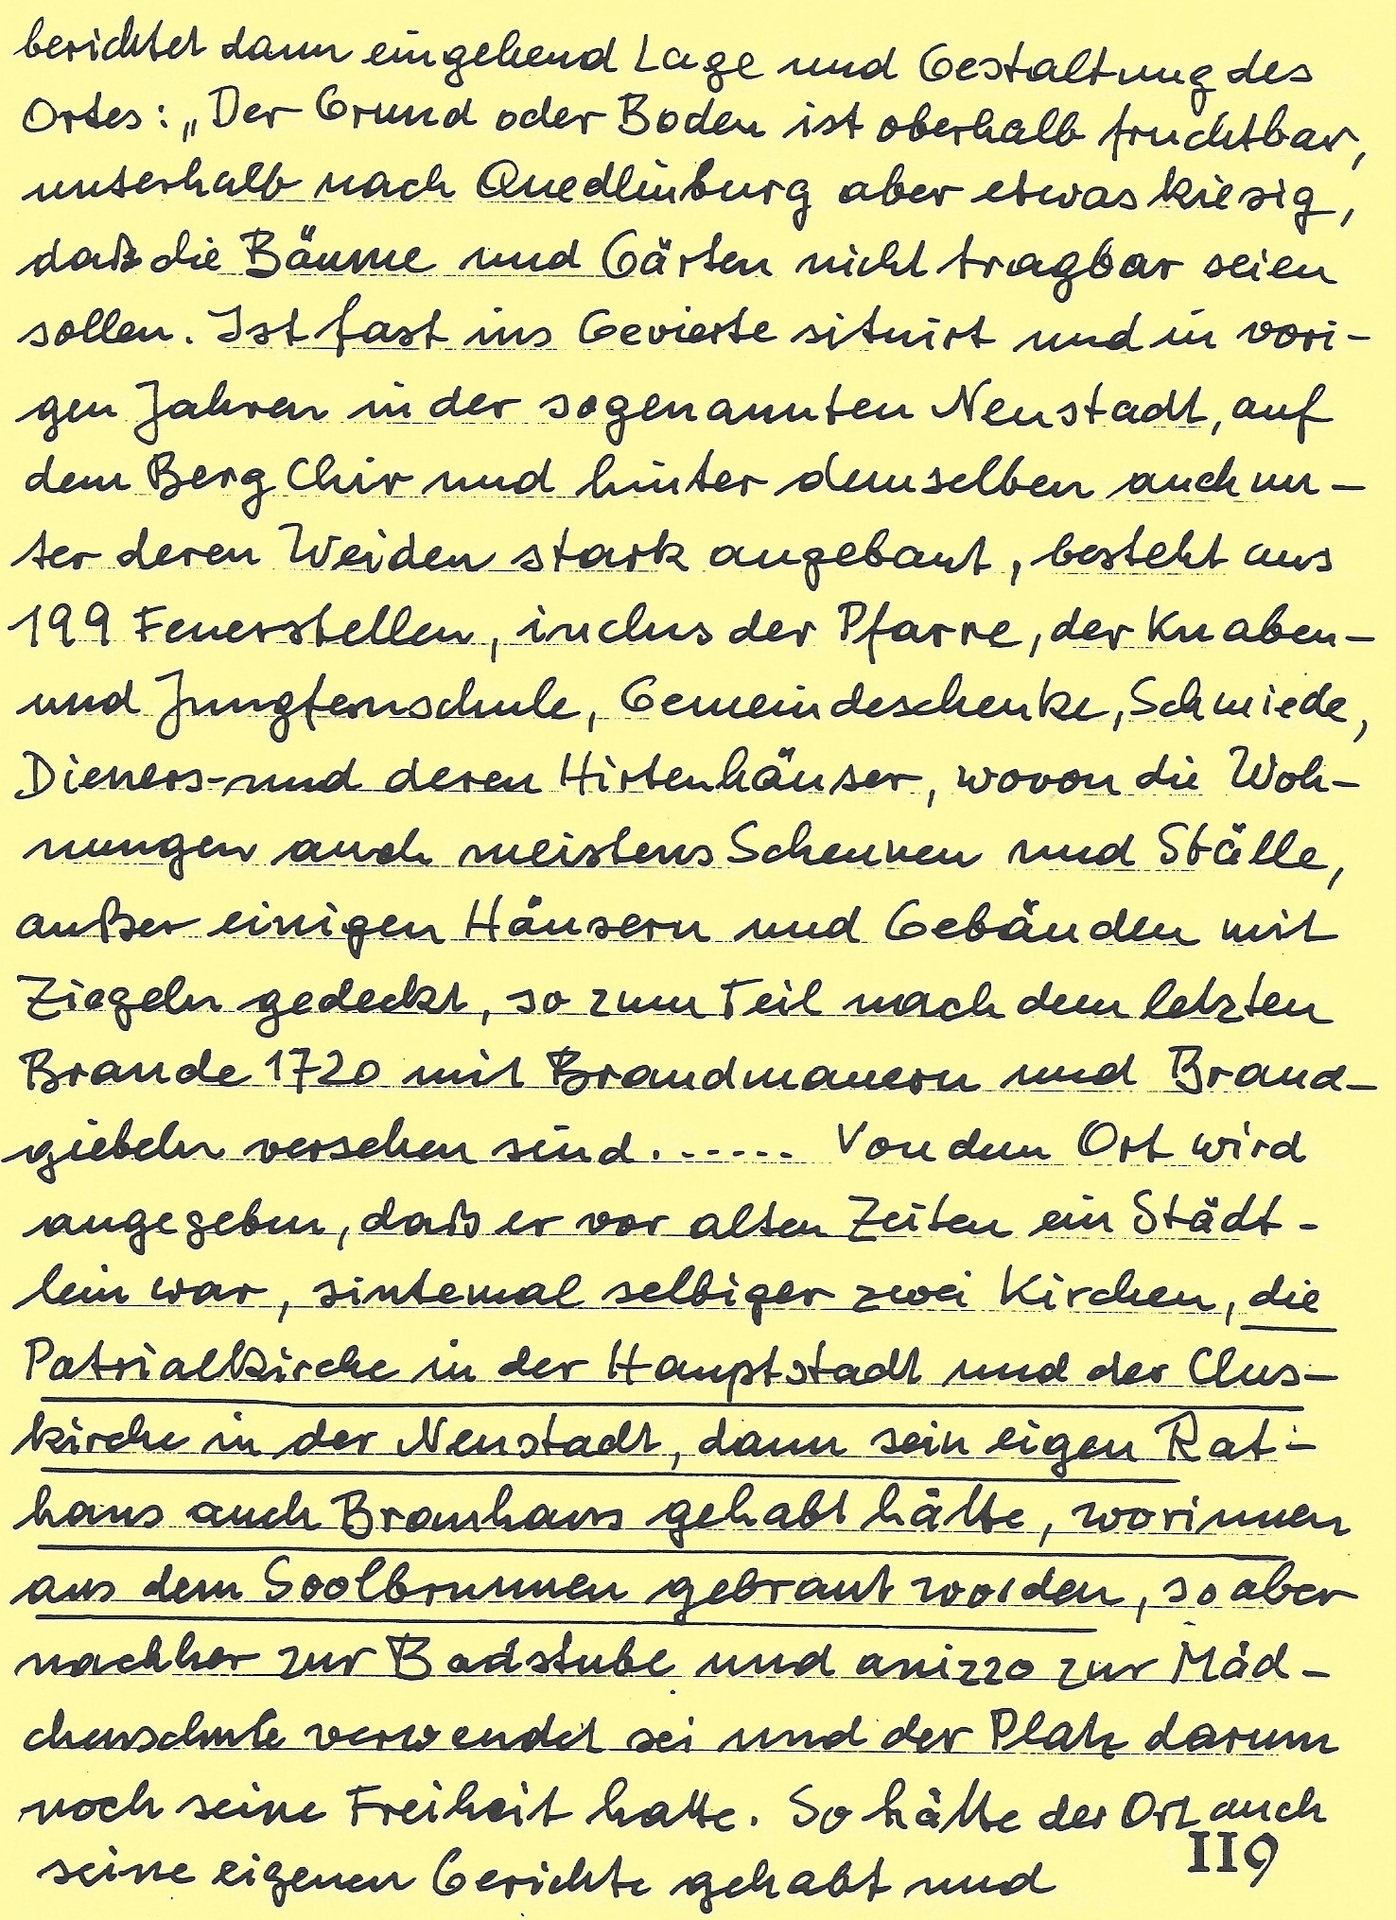 berichtet dann eingehend Lage und Gestaltung des
Ortes: „Der Grund oder Boden ist oberhalb fruchtbar,
unterhalb nach Quedlinburg aber etwas kiesig,
daß die Bäume und Gärten nicht tragbar seien
sollen. Ist fast ins Gevierte situirt und in vori-
gen Jahren in der sogenannten Neustadt, auf
dem Berg Chir und hinter demselben auch un-
ter deren Weiden stark angebaut, besteht aus
199 Feuerstellen, inclus der Pfarre, der Knaben-
und Jungfernschule, Gemeindeschenke, Schmiede,
Dieners- und deren Hirtenhäuser, wovon die Woh-
nungen auch meistens Scheunen und Ställe,
außer einigen Häusern und Gebäuden mit
Ziegeln gedeckt, so zum Teil nach dem letzten
Brande 1720 mit Brandmauern und Brand-
giebeln versehen sind....... Von dem Ort wird
angegeben, daß er vor alten Zeiten ein Städt-
lein war, sintemal selbiger zwei Kirchen, die
Patrialkirche in der Hauptstadt und der Clus-
kirche in der Neustadt, dann sein eigen Rat-
haus auch Brauhaus gehabt hätte, worinnen
aus dem Soolbrunnen gebraut worden, so aber
nachher zur Badstube und anizzo zur Mäd-
chenschule verwendet sei und der Platz darum
noch seine Freiheit hatte. So hätte der Ort auch
seine eigenen Gerichte gehabt und
119